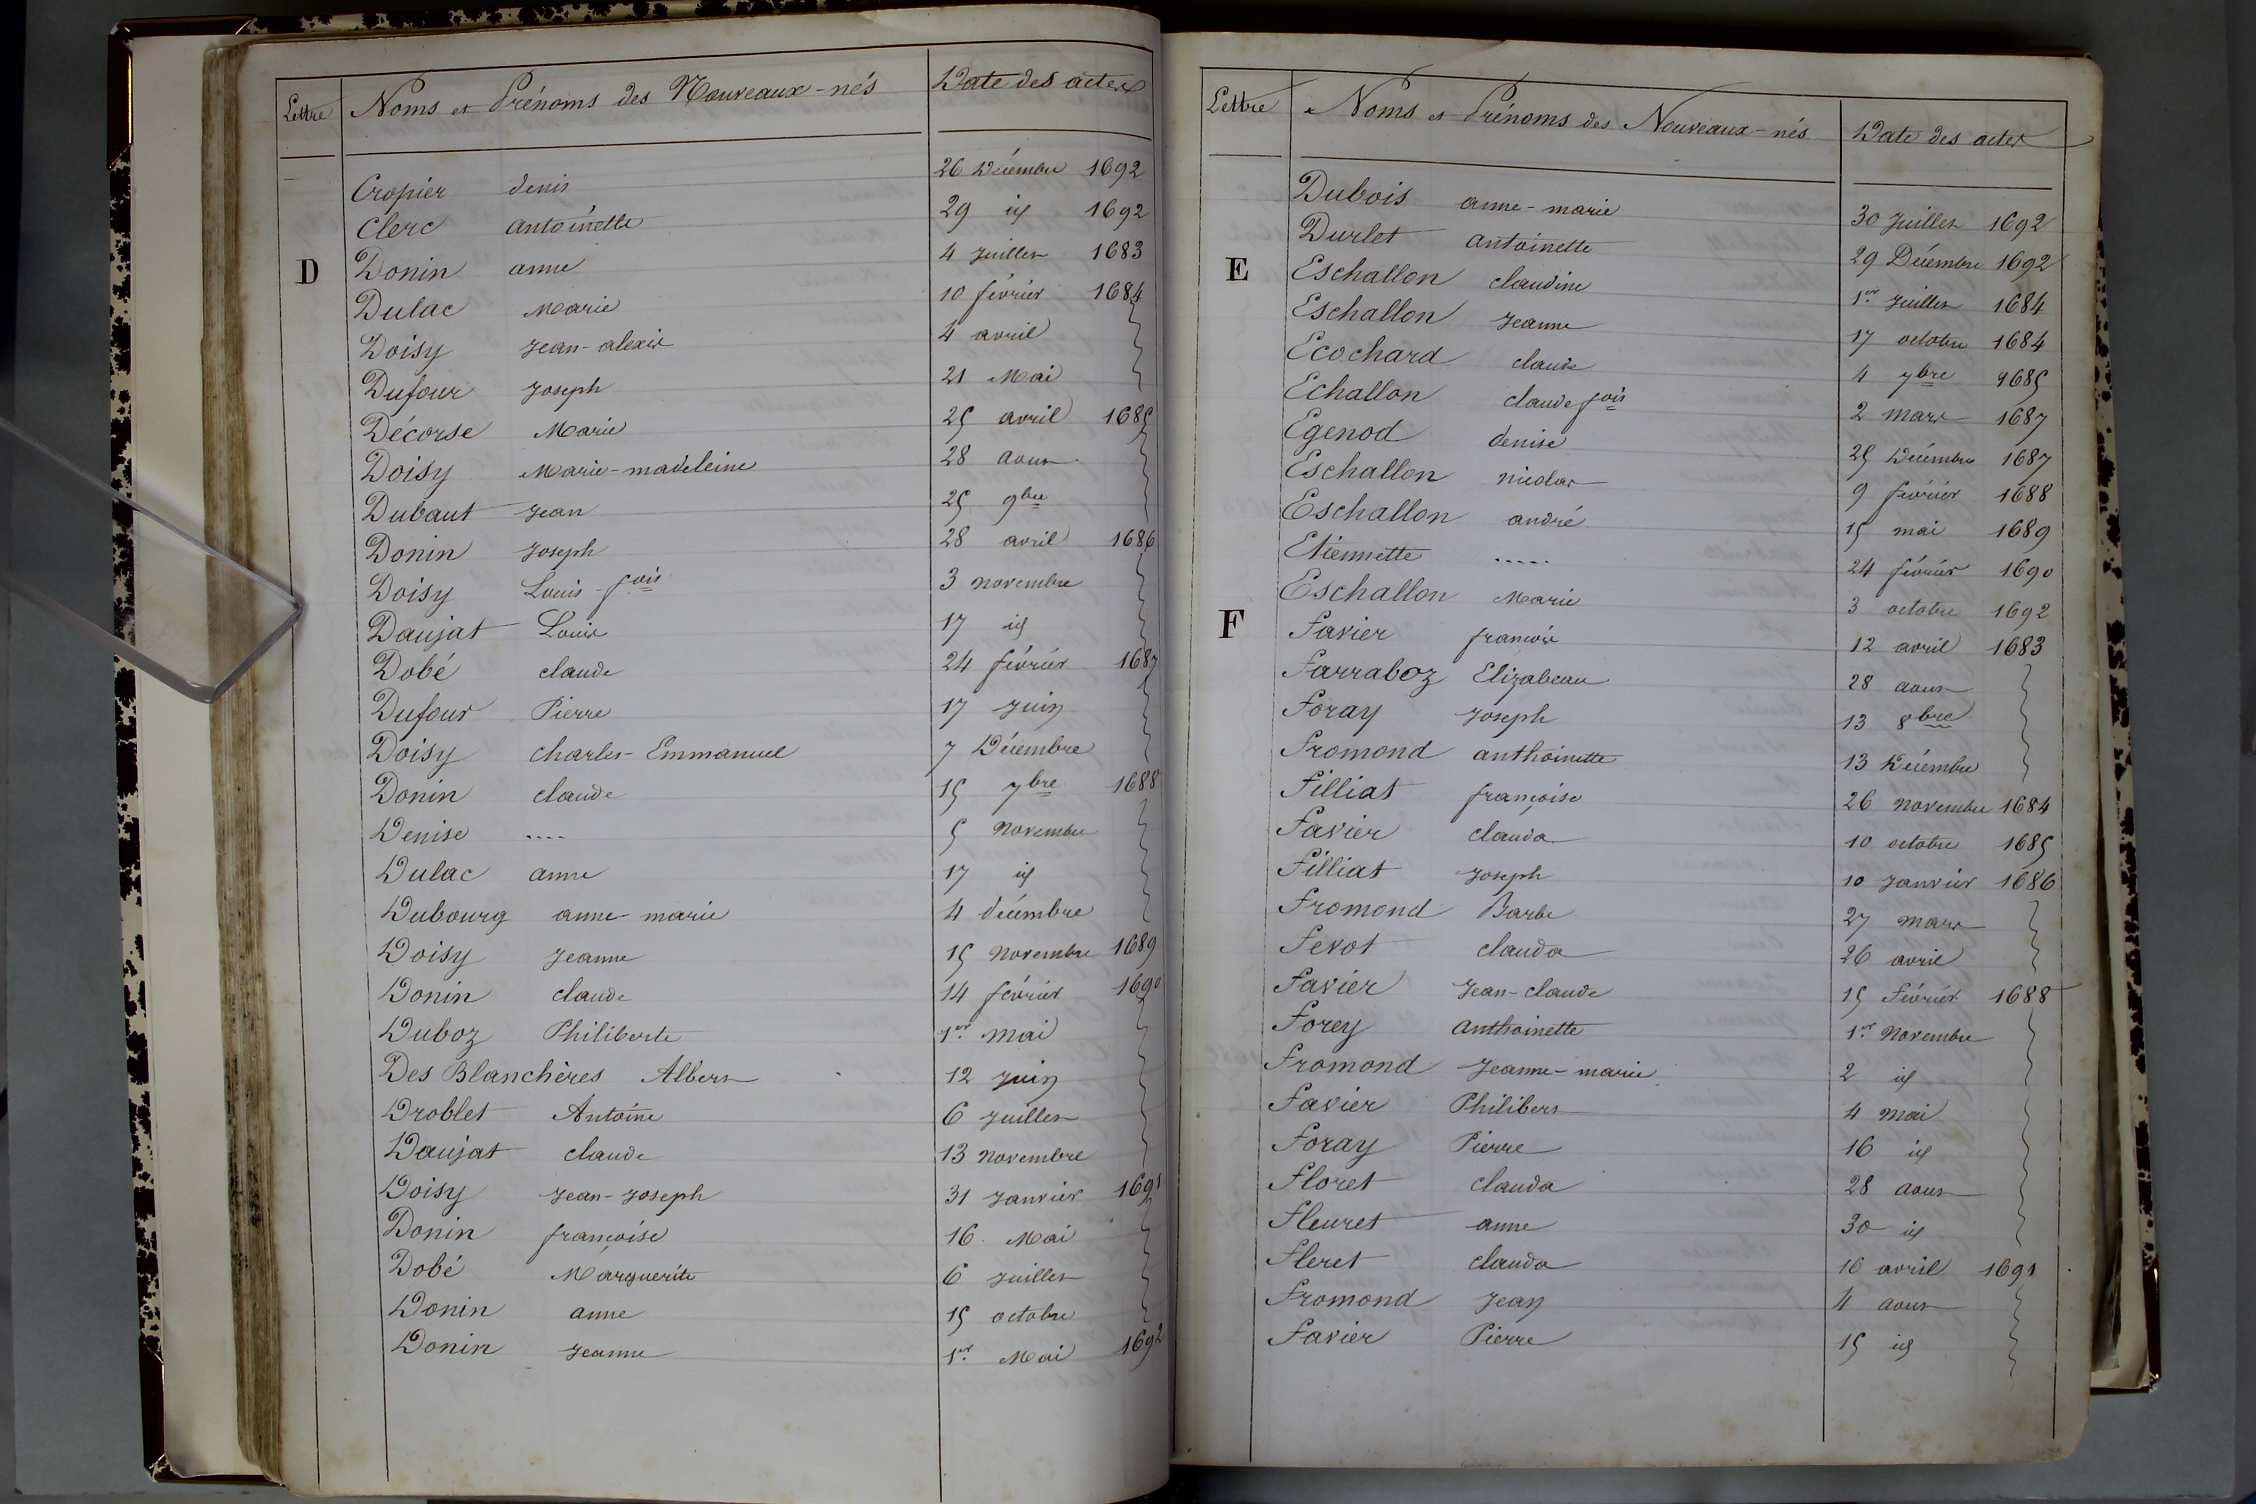 Lettre Noms et Prénoms des Nouveaux-nés Date des actes
Cropier denis 26 Décembre 1692
Clerc antoinette 29 id 1692
D Donin anne 4 juillet 1683
Dulac Marie 10 février 1684
Doisy Jean-alexis 4 avril
Dufour Joseph 21 Mai
Décorse Marie 25 avril 1685
Doisy Marie-madeleine 28 aout
Dubaut Jean 25 9bre
Donin Joseph 28 avril 1686
Doisy Louis-fois 3 novembre
Daujat Louis 17 id
Dobé claude 24 février 1687
Dufour Pierre 17 Juin
Doisy charles-Emmanuel 7 Décembre
Donin claude 15 7bre 1688
Denise .... 5 Novembre
Dulac anne 17 id
Dubourg anne-marie 4 décembre
Doisy Jeanne 15 Novembre 1689
Donin claude 14 février 1690
Duboz Philiberte 1er Mai
Des Blanchères Albert 12 Juin
Droblet Antoine 6 Juillet
Daujat claude 13 Novembre
Doisy Jean-Joseph 31 Janvier 1691
Donin françoise 16 Mai
Dobé Marguerite 6 juillet
Donin anne 15 octobre
Donin Jeanne 1er Mai 1692
Lettre Noms et Prénoms des Nouveaux-nés Date des actes
Dubois anne-marie 30 Juillet 1692
Durlet antoinette 29 Décembre 1692
E Eschallon claudine 1er Juillet 1684
Eschallon Jeanne 17 octobre 1684
Ecochard claude 4 7bre 1685
Echallon claude fois 2 mars 1687
Egenod denise 25 Décembre 1687
Eschallon nicolas 9 février 1688
Eschallon andré 15 mai 1689
Etiennette ..... 24 février 1690
Eschallon Marie 3 octobre 1692
F Favier françois 12 avril 1683
Farraboz Elizabeau 28 aout
Foray Joseph 13 8bre
Fromond anthoinette 13 Décembre
Filliat françoise 26 novembre 1684
Favier clauda 10 octobre 1685
Filliat Joseph 10 Janvier 1686
Fromond Barbe 27 mars
Fevot clauda 26 avril
Favier Jean-claude 15 Février 1688
Forey anthoinette 1er Novembre
Fromond Jeanne-marie 2 id
Favier Philibert 4 Mai
Foray Pierre 16 id
Floret clauda 28 aout
Fleuret anne 30 id
Fleret clauda 16 avril 1691
Fromond Jean 4 aout
Favier Pierre 15 id